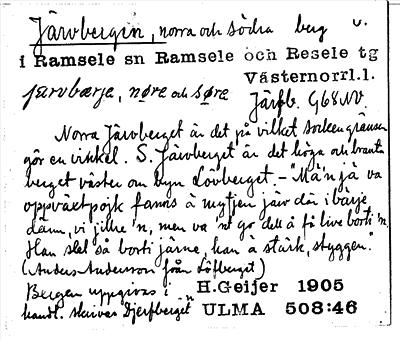 Järvbergin, norra och södra berg v.
i Ramsele sn Ramsele och Resele tg
Västernorrl.l.
järvbærje, nøre och søre
Järfb. G68NV.
Norra Järvberget är det på vilket sockengränsen
gör en vinkel. S. Järvberget är det höga och branta
berget väster om byn Lövberget. – "Mä'n jä va
oppväxtpojk fanns å mytjen järv där i bärje
därn, vi jillre 'n, men va 'nt go dell å få live borti 'n.
Han slet så borti järne, han a stärk, styggen."
(Anders Andersson från Löfberget)
Bergen uppgivas i H.Geijer 1905
handl. skrivas "Djerfberget" ULMA 508:46